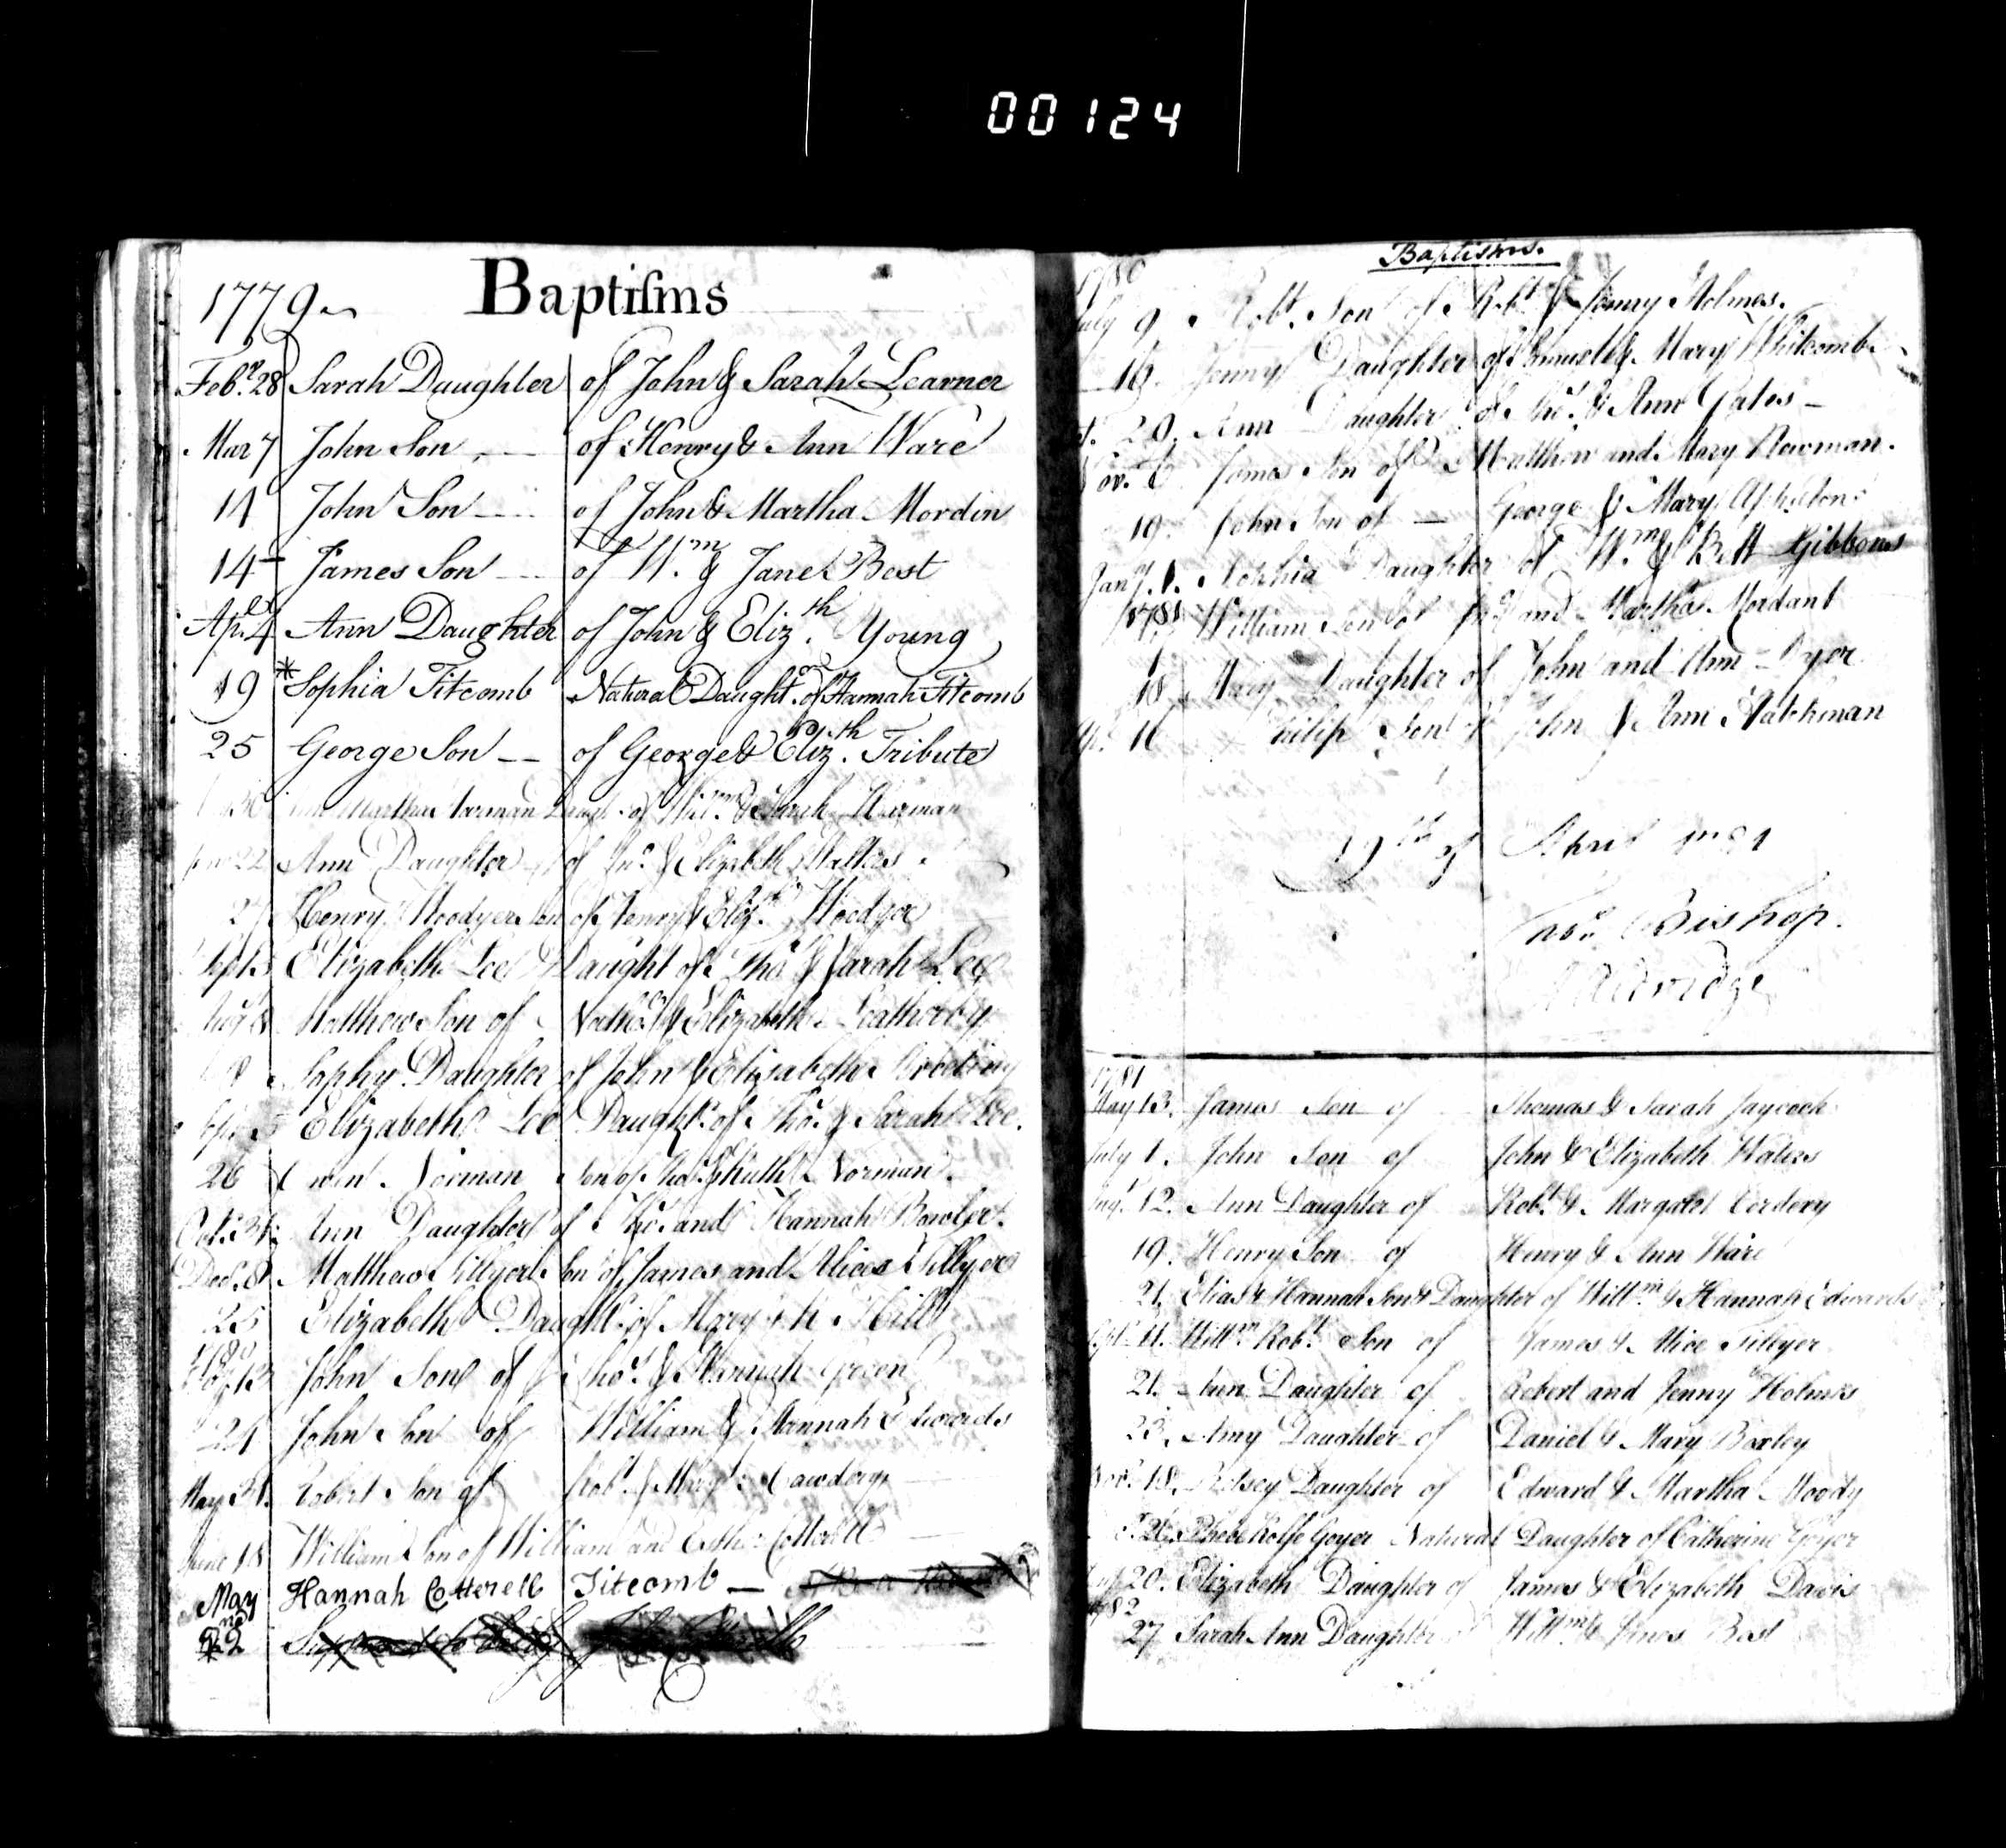 00124
Baptiſms
1779
Feb.y 28 Sarah Daughter of John & Sarah Learner
Mar 7 John Son of Henry & Ann Ware
14 John Son of John & Martha Mordin
14 James Son of Wm. & Jane Best
Apl. 4 Ann Daughter of John & Elizth. Young
19 *Sophia Titcomb Natural Daughter of Hannah Titcomb
25 George Son of George & Elizth. Tribute
Martha Norman Daugh. of Willm. & Sarah Norman
22 Ann Daughter of Jno. & Elizabeth Watters
27 Henry Woodyer Son of Henry & Elizth. Woodyer
Sept. 5 Elizabeth Lee Daught of Tho.s & Sarah Lee
Aug 8 Matthew Son of & Elizabeth Leatherby
8 Sophy Daughter of John & Elizabeth
Sept. 5 Elizabeth Lee Daught. of Tho.s & Sarah Lee.
26 Norman Son of Tho.s & Ruth Norman
Oct. 31 Ann Daughter of Tho.s and Hannah Bowler.
Dec. 8 Matthew Tillyer Son of James and Alice Tillyer
25 Elizabeth Daught. of Mary Hill
1780
13 John Son of Tho.s & Hannah Green
24 John Son of William & Hannah Edwards
May 31. Robert Son of Rob.t & Marg.t Cawdery
June 18 William Son of William and Esther Cotterell
May Hannah Cotterell Titcomb —
22nd
*
Baptisms.
1780
July 9 Robt. Son of Robt. & Jenny Holmes.
16. Jenny Daughter of Samuel & Mary Whitcomb
29. Ann Daughter of Tho.s & Ann Gates —
Nov. 6 James Son of Matthew and Mary Newman.
19. John Son of — George & Mary
Jan.y 1. Sophia Daughter of Wm. & Bett Gibbons
1781 William Son of Jno. and Martha Mordant
18 Mary Daughter of John and Ann Dyer
Apl. 16 Philip Son of John & Ann Hackman
19th of April 1781
Bishop.
Aldridge
1781
May 13. James Son of Thomas & Sarah Jaycock
July 1. John Son of John & Elizabeth Waters
Aug.t 12. Ann Daughter of Robt. & Margaret Cordery
19. Henry Son of Henry & Ann Ware
21. Elias & Hannah Son & Daughter of Willm. & Hannah Edwards
Sept. 11. Willm. Robt. Son of James & Alice Tillyer
21. Ann Daughter of Robert and Jenny Holmes
23. Amy Daughter of Daniel & Mary Boxley
Nov.r 18. Betsey Daughter of Edward & Martha Moody
26. Phebe Rolfe Goyer Natural Daughter of Catherine Goyer
Jan.y 20. Elizabeth Daughter of James & Elizabeth Davis
1782
27 Sarah Ann Daughter Willm. & Jenes Best